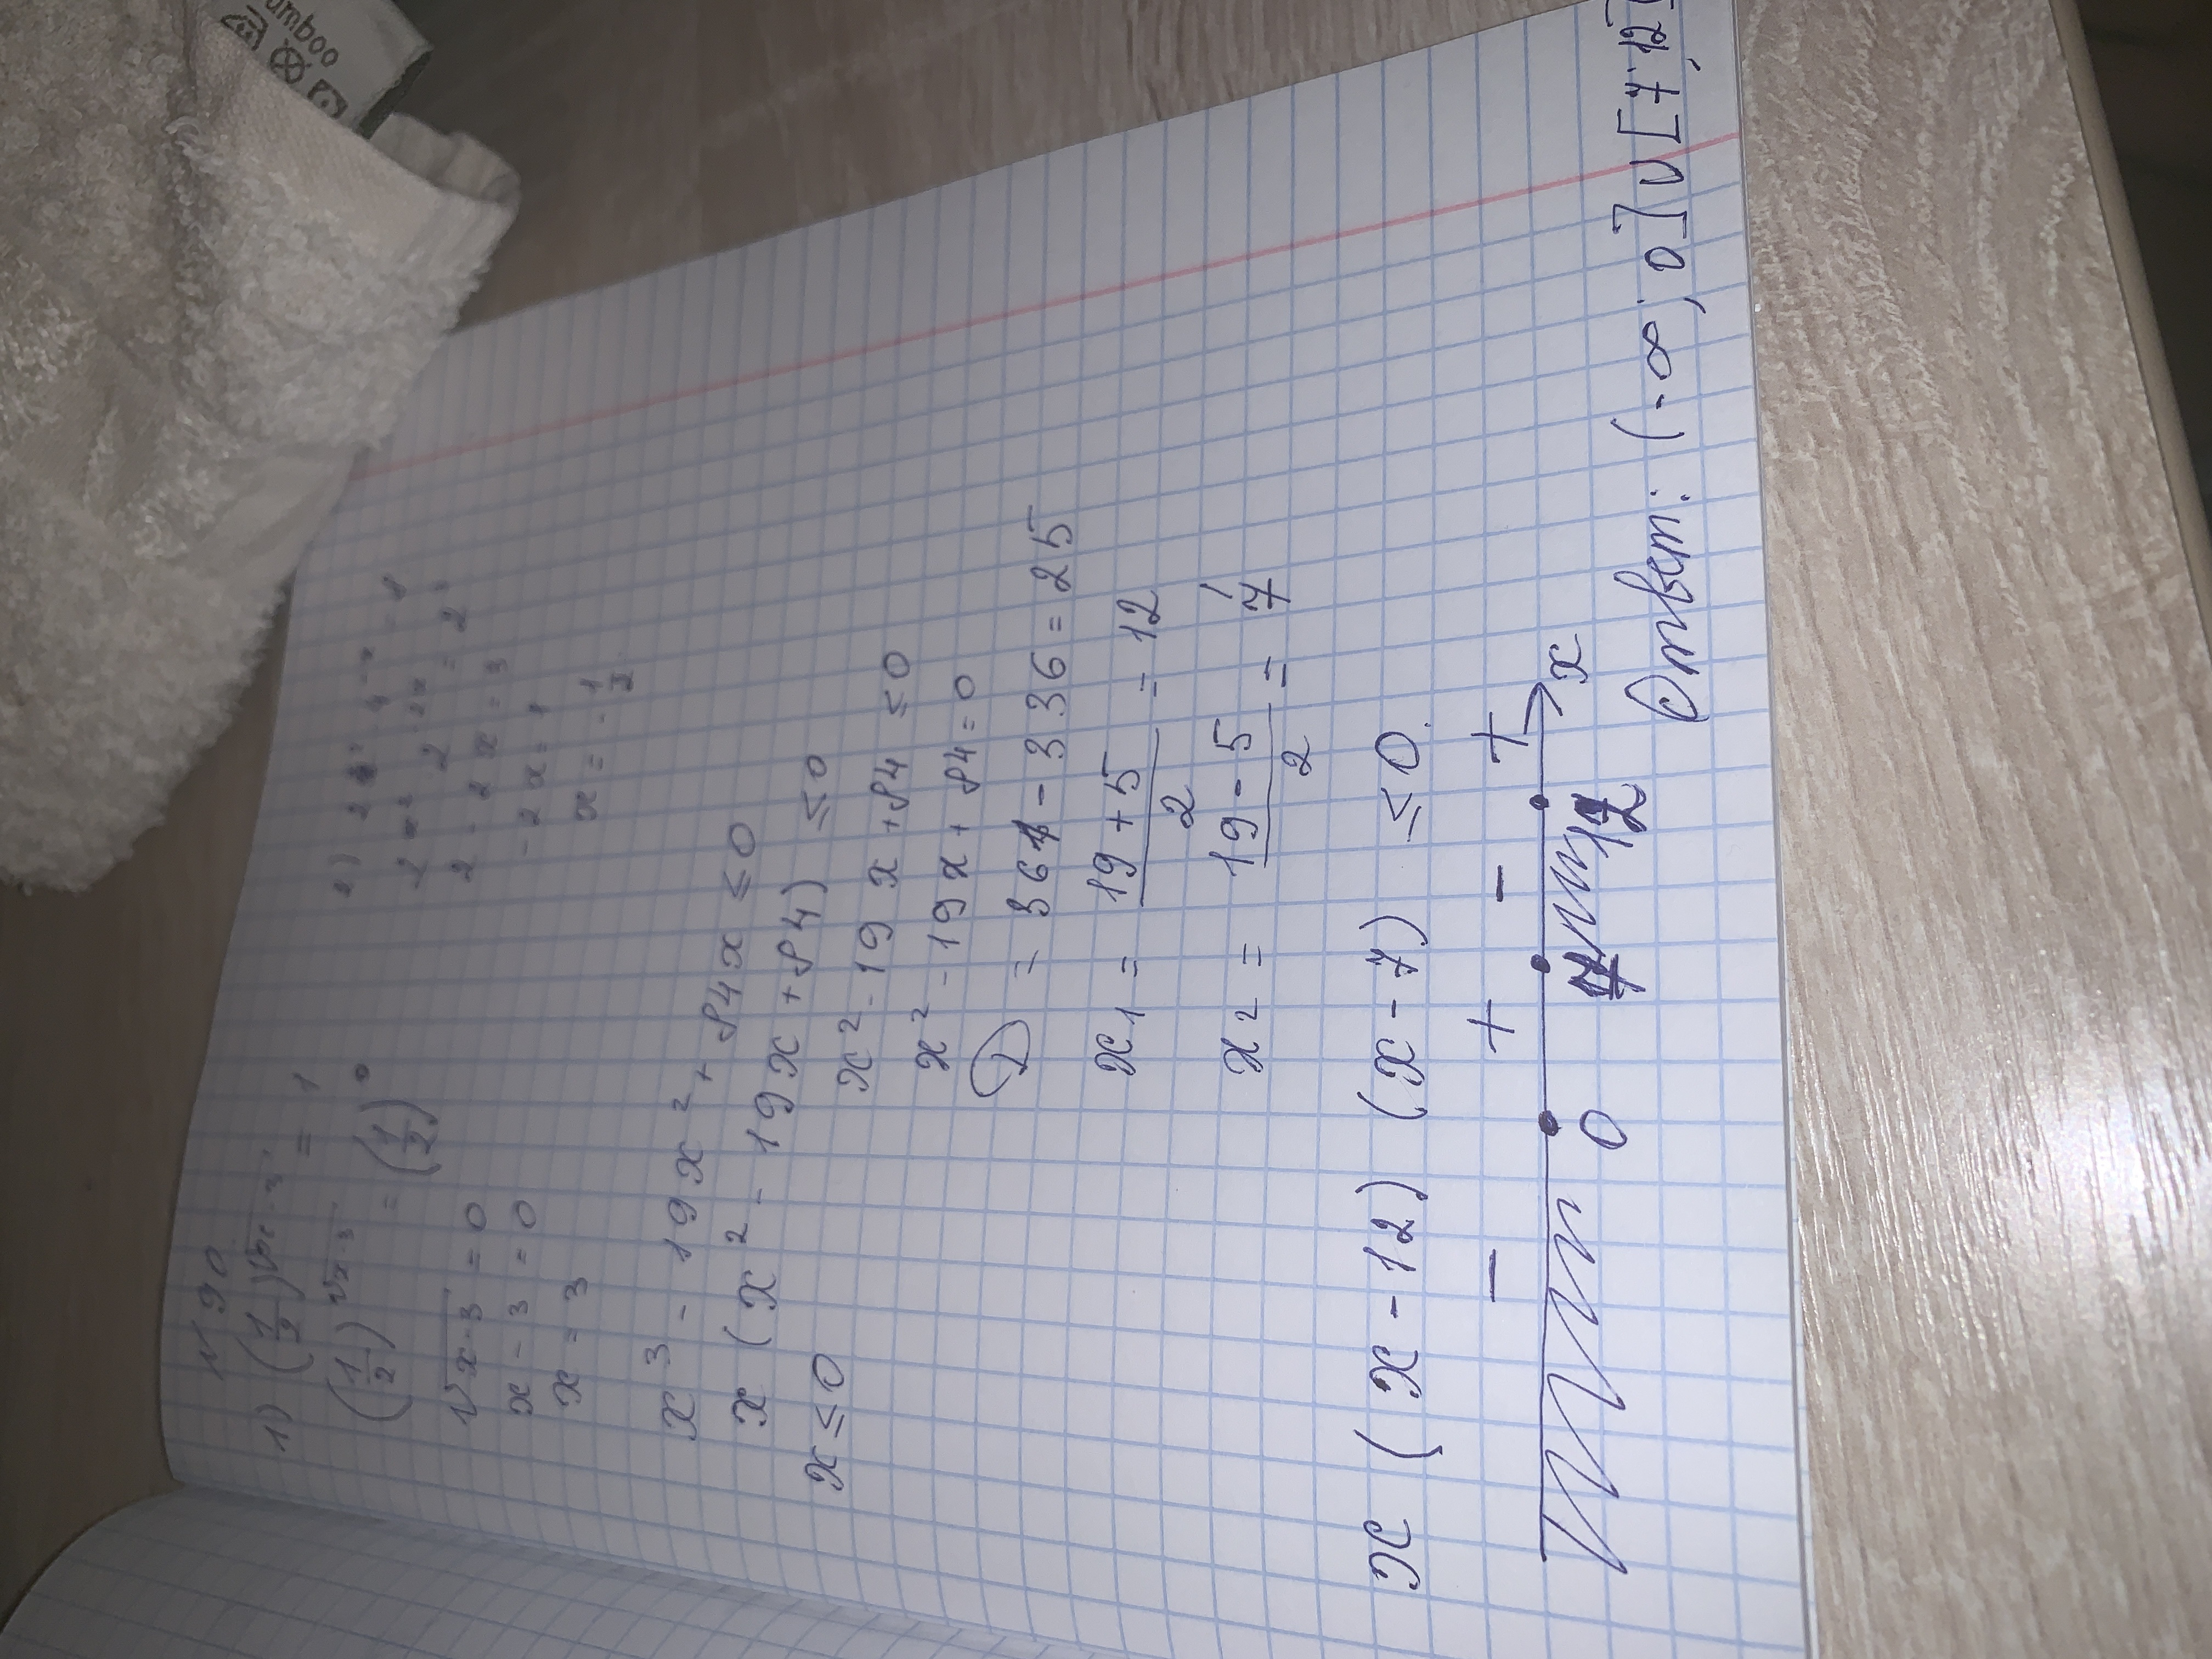 N 90
1) (1/2)^√x-3 = 1
(1/2)^√x-3 = (1/2)^0
√x-3 = 0
x - 3 = 0
x = 3
2)
2 · 2 = 2
2 - 2x = 3
- 2x = 1
x = - 1/2
x³ - 19x² + 84x ≤ 0
x (x² - 19x + 84) ≤ 0
x ≤ 0
x² - 19x + 84 ≤ 0
x² - 19x + 84 = 0
D = 361 - 336 = 25
x1 = (19 + 5)/2 = 12
x2 = (19 - 5)/2 = 7
x (x - 12) (x - 7) ≤ 0
- + - +
0 7 12 x
Ответ: (-∞; 0] ∪ [7; 12]
umboo